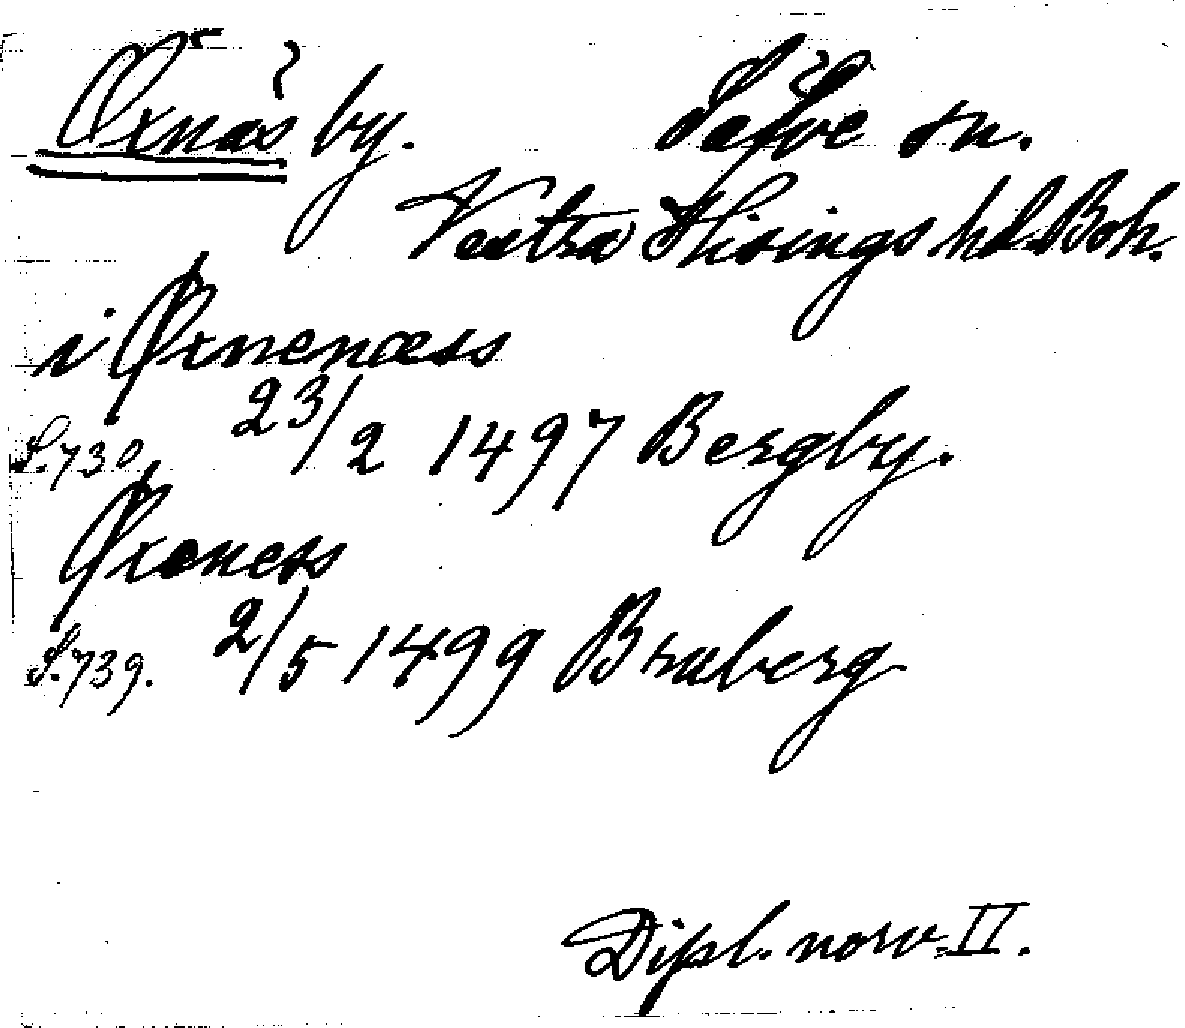 Öxnäs by. Säfve sn.
Vestra Hisings hd. Boh.
i Øxnenæss
S. 730. 23/2 1497 Bergby.
Øxeness
S. 739. 2/5 1499 Braberg
Dipl. norv. II.